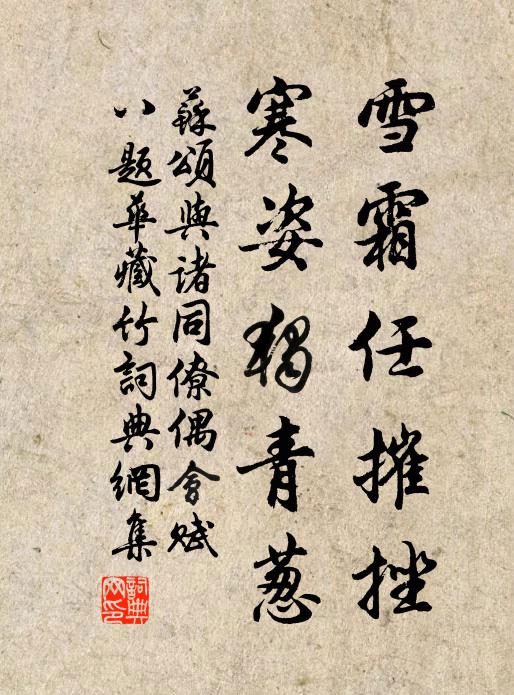 雪霜任摧挫
寒姿獨青葱
蘇頌與諸同僚偶會賦
八題華藏竹詞典網集